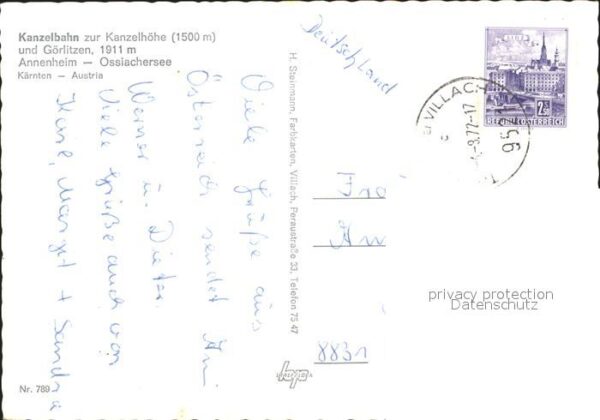 Kanzelbahn zur Kanzelhöhe (1500 m)
und Görlitzen, 1911 m
Annenheim — Ossiachersee
Kärnten — Austria
Viele Grüße aus
Österreich sendet
Werner u. Dieter.
Viele Grüße auch von
Karl, Margot + Sandra
Nr. 789
H. Steinmann Farbkarten, Villach, Peraustraße 33, Telefon 75 47
Deutschland
LINZ
2.50
REPUBLIK ÖSTERREICH
VILLACH
-8.77-17
9506
8831
privacy protection
Datenschutz